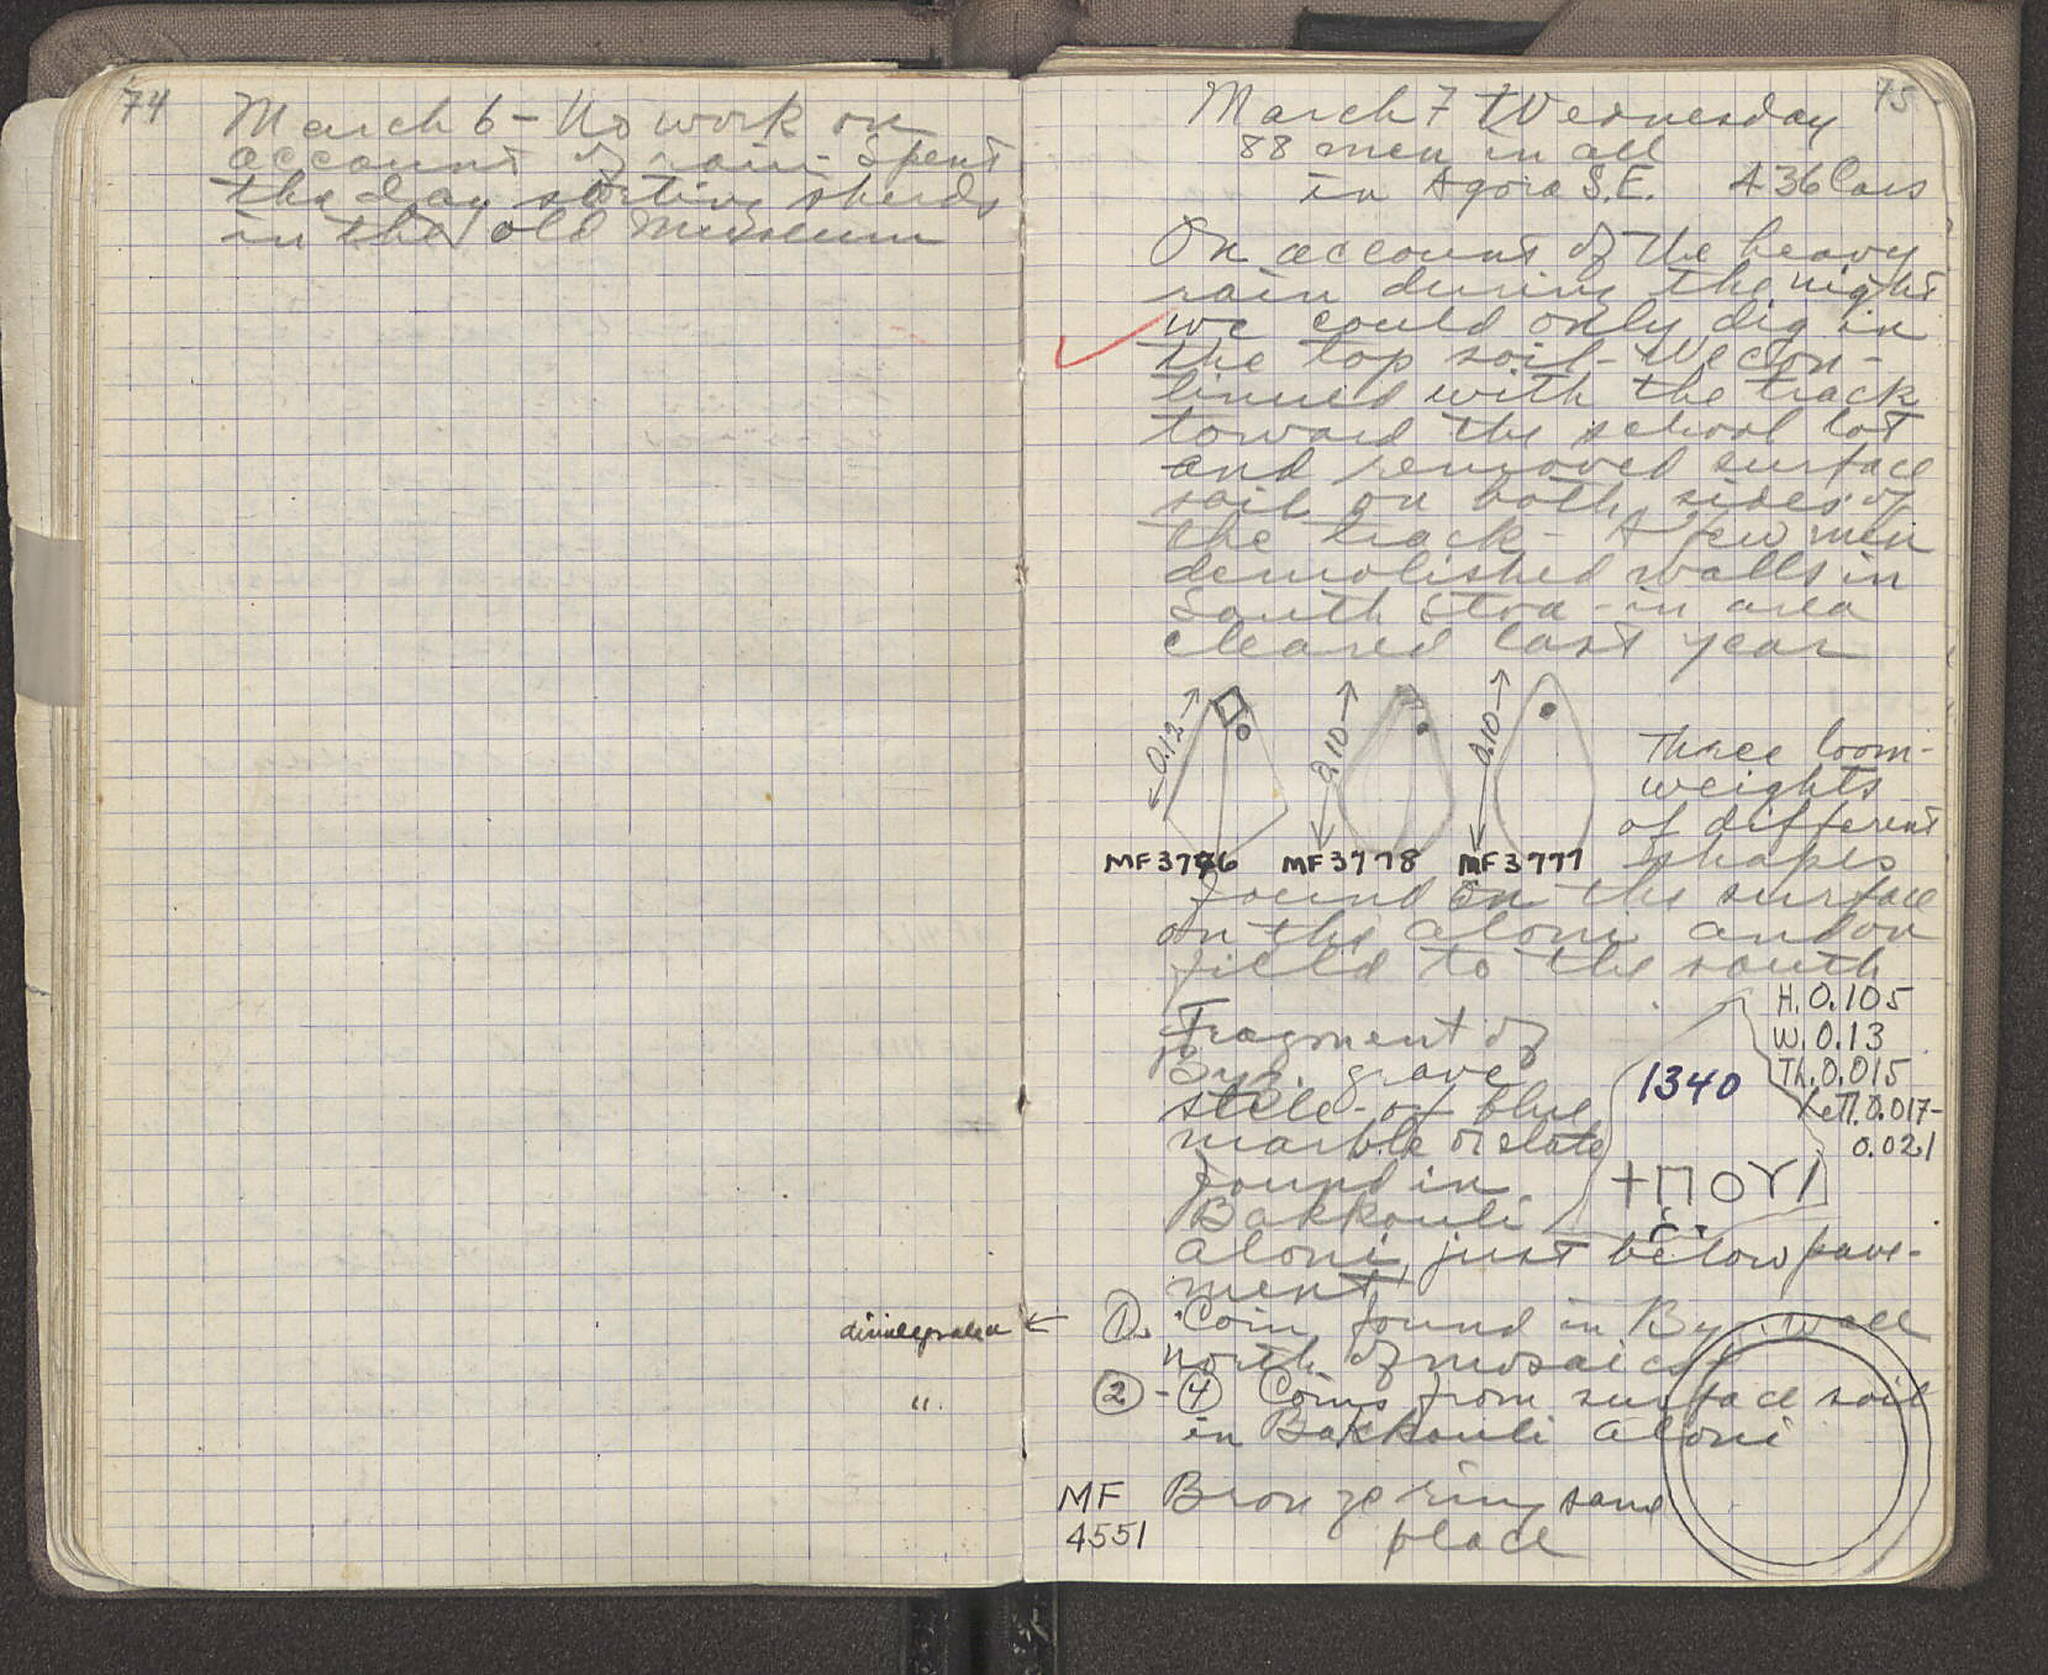 74
March 6 - No work on
account of rain - Spent
the day sorting sherds
in the old Museum
disintegrated
"
75
March 7 Wednesday
88 men in all
in Agora S.E. A 36 Cars
On account of the heavy
rain during the night
we could only dig in
the top soil - We con-
tinued with the track
toward the school lot
and removed surface
soil on both sides of
the track - A few men
demolished walls in
South Stoa - in area
cleared last year
0.12 0.10 0.10
Three loom-
weights
of different
shapes
MF3776 MF3778 MF3777
found on the surface
on the aloni and on
field to the south
H. 0.105
W. 0.13
Th. 0.015
LetH. 0.017-
0.021
Fragment of
Byz. grave
stele - of blue
marble or slate
found in
Bakkouli
aloni, just below pave-
ment
1340
+ΠΟΥ
① Coin found in By. wall
north of mosaics
② - ④ Coins from surface soil
in Bakkouli aloni
MF
4551
Bronze ring same
place